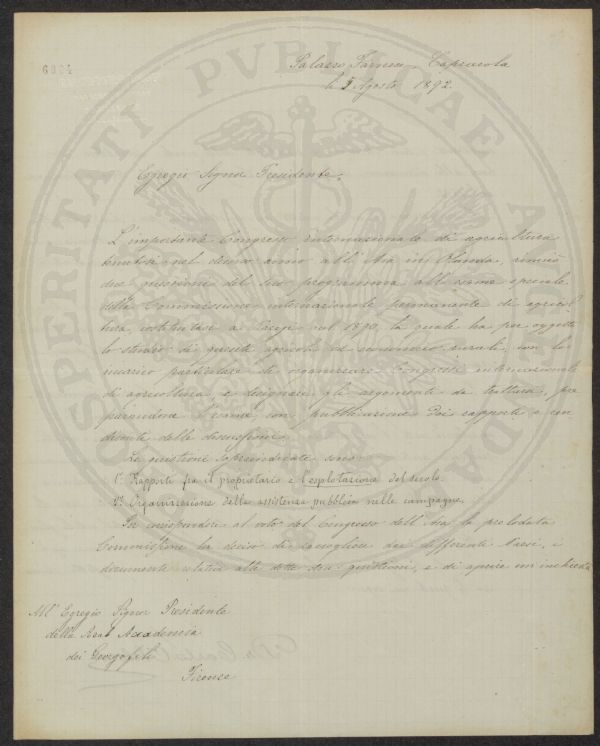 Palazzo Farnese, Caprarola
li 3 Agosto 1892.
Egregio Signor Presidente.
L'importante Congresso internazionale di agricoltura
tenutosi nel decorso anno all'Aia in Olanda, rinviò
due questioni del suo programma all'esame speciale
della Commissione internazionale permanente di agricol
tura, instituitasi a Parigi nel 1890, la quale ha per oggetto
lo studio di questioni agricole ed economico rurali, con lo
incarico particolare di organizzare Congressi internazionali
di agricoltura, e designare gli argomenti da trattarsi, pre
parandone l'esame con pubblicazione dei rapporti e ren
diconti delle discussioni.
Le questioni sopraindicate sono:
1° Rapporti fra il proprietario e l'esplotazione del suolo.
2° Organizzazione della assistenza pubblica nelle campagne.
In corrispondere al voto del Congresso dell'Aia la prelodata
Commissione ha deciso di raccogliere dai differenti Paesi, i
documenti relativi alle dette due questioni, e di aprire un'inchiesta
All' Egregio Signor Presidente
della Real Accademia
dei Georgofili
Firenze
PROSPERITATI PUBLICAE AUGENDAE